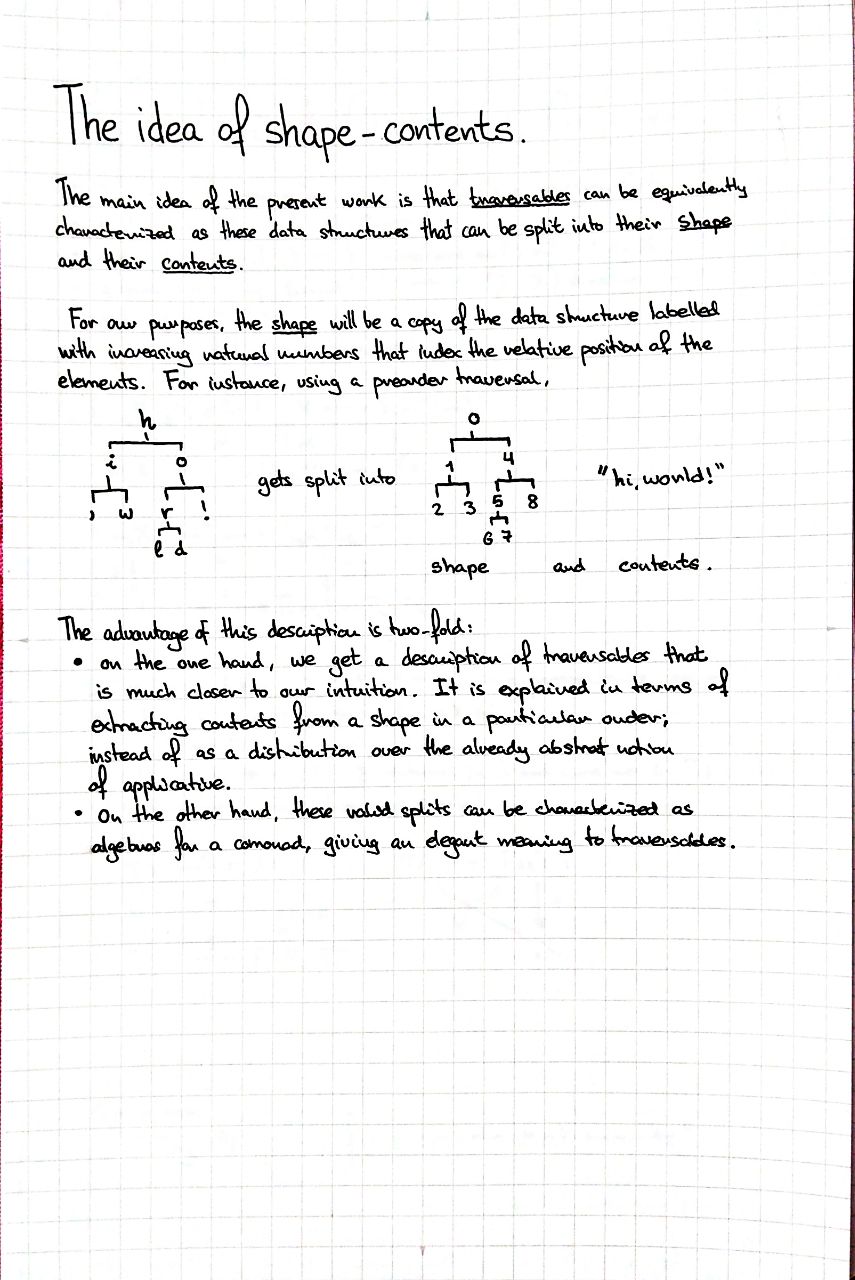 The idea of shape-contents.
The main idea of the present work is that traversables can be equivalently
characterized as these data structures that can be split into their shape
and their contents.
For our purposes, the shape will be a copy of the data structure labelled
with increasing natural numbers that index the relative position of the
elements. For instance, using a preorder traversal,
h
i o
, w r !
l d
gets split into
0
1 4
2 3 5 8
6 7
"hi, world!"
shape and contents.
The advantage of this description is two-fold:
• on the one hand, we get a description of traversables that
is much closer to our intuition. It is explained in terms of
extracting contents from a shape in a particular order;
instead of as a distribution over the already abstrat notion
of applicative.
• On the other hand, these valid splits can be characterized as
algebras for a comonad, giving an elegant meaning to traversables.